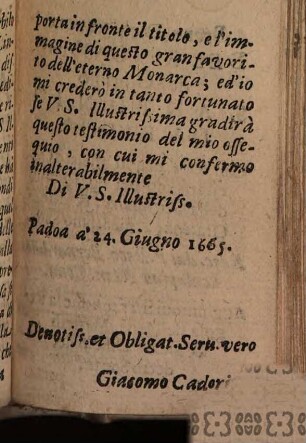 porta in fronte il titolo, e l'im-
magine di questo gran favori-
to dell'eterno Monarca; ed'io
mi crederò in tanto fortunato
se V. S. Illustrissima gradirà
questo testimonio del mio osse-
quio, con cui mi confermo
inalterabilmente
Di V. S. Illustriss.
Padoa a' 24. Giugno 1665.
Denotiss. et Obligat. Seru. vero
Giacomo Cadori